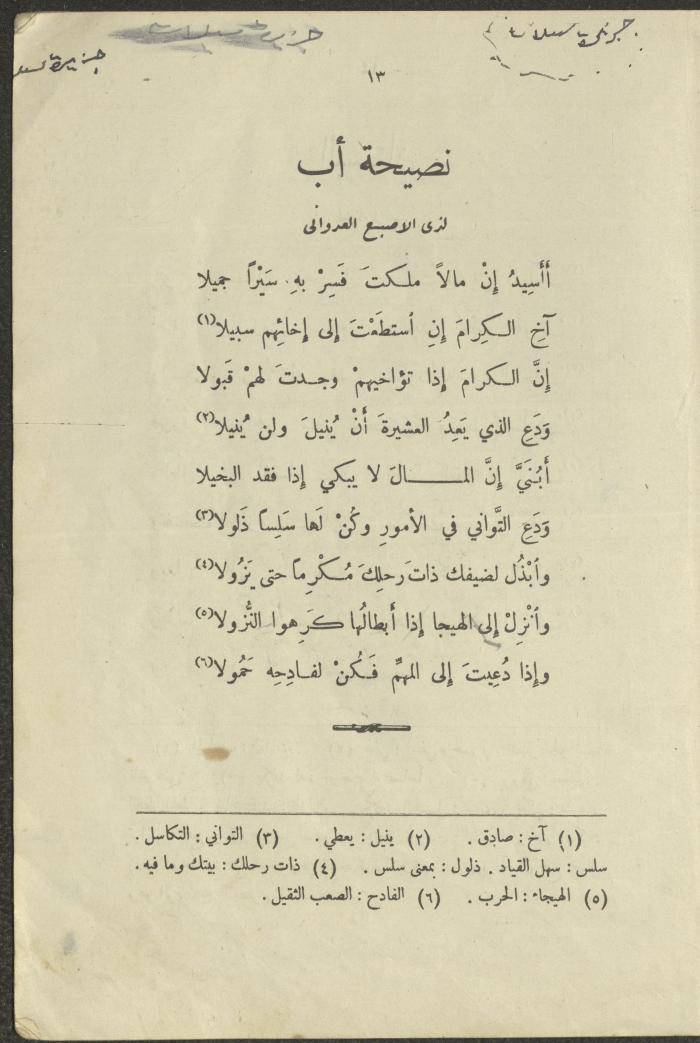 جزيرة سيلان
١٣
نصيحة أب
لذى الاصبع العدوانى
أَأُسِيدُ إِنْ مالاً ملكتَ فَسِرْ بهِ سَيْرًا جميلا
آخِ الكِرامَ إِنِ ٱستطَعْتَ إِلى إِخائِهِم سبيلا(١)
إِنَّ الكرامَ إِذا تؤاخيهمْ وجدتَ لهمْ قَبولا
وَدَعِ الذي يَعِدُ العشيرةَ أَنْ يُنيلَ ولن يُنيلا(٢)
أَبُنَيَّ إِنَّ المالَ لا يبكي إِذا فقد البخيلا
وَدَعِ التَّواني في الأمورِ وكُنْ لَها سَلِساً ذَلولا(٣)
وٱبْذُل لضيفك ذاتَ رحلِكَ مُكْرِماً حتى يَزُولا(٤)
وٱنْزِلْ إِلى الهيجا إِذا أَبطالُها كَرِهوا النُّزولا(٥)
وإِذا دُعِيتَ إِلى المهمِّ فَكُنْ لفادِحِه حَمُولا(٦)
(١) آخ : صادِق . (٢) ينيل : يعطي . (٣) التواني : التكاسل .
سلس : سهل القياد . ذلول : بمعنى سلس . (٤) ذات رحلك : بيتك وما فيه .
(٥) الهيجاء : الحرب . (٦) الفادح : الصعب الثقيل .